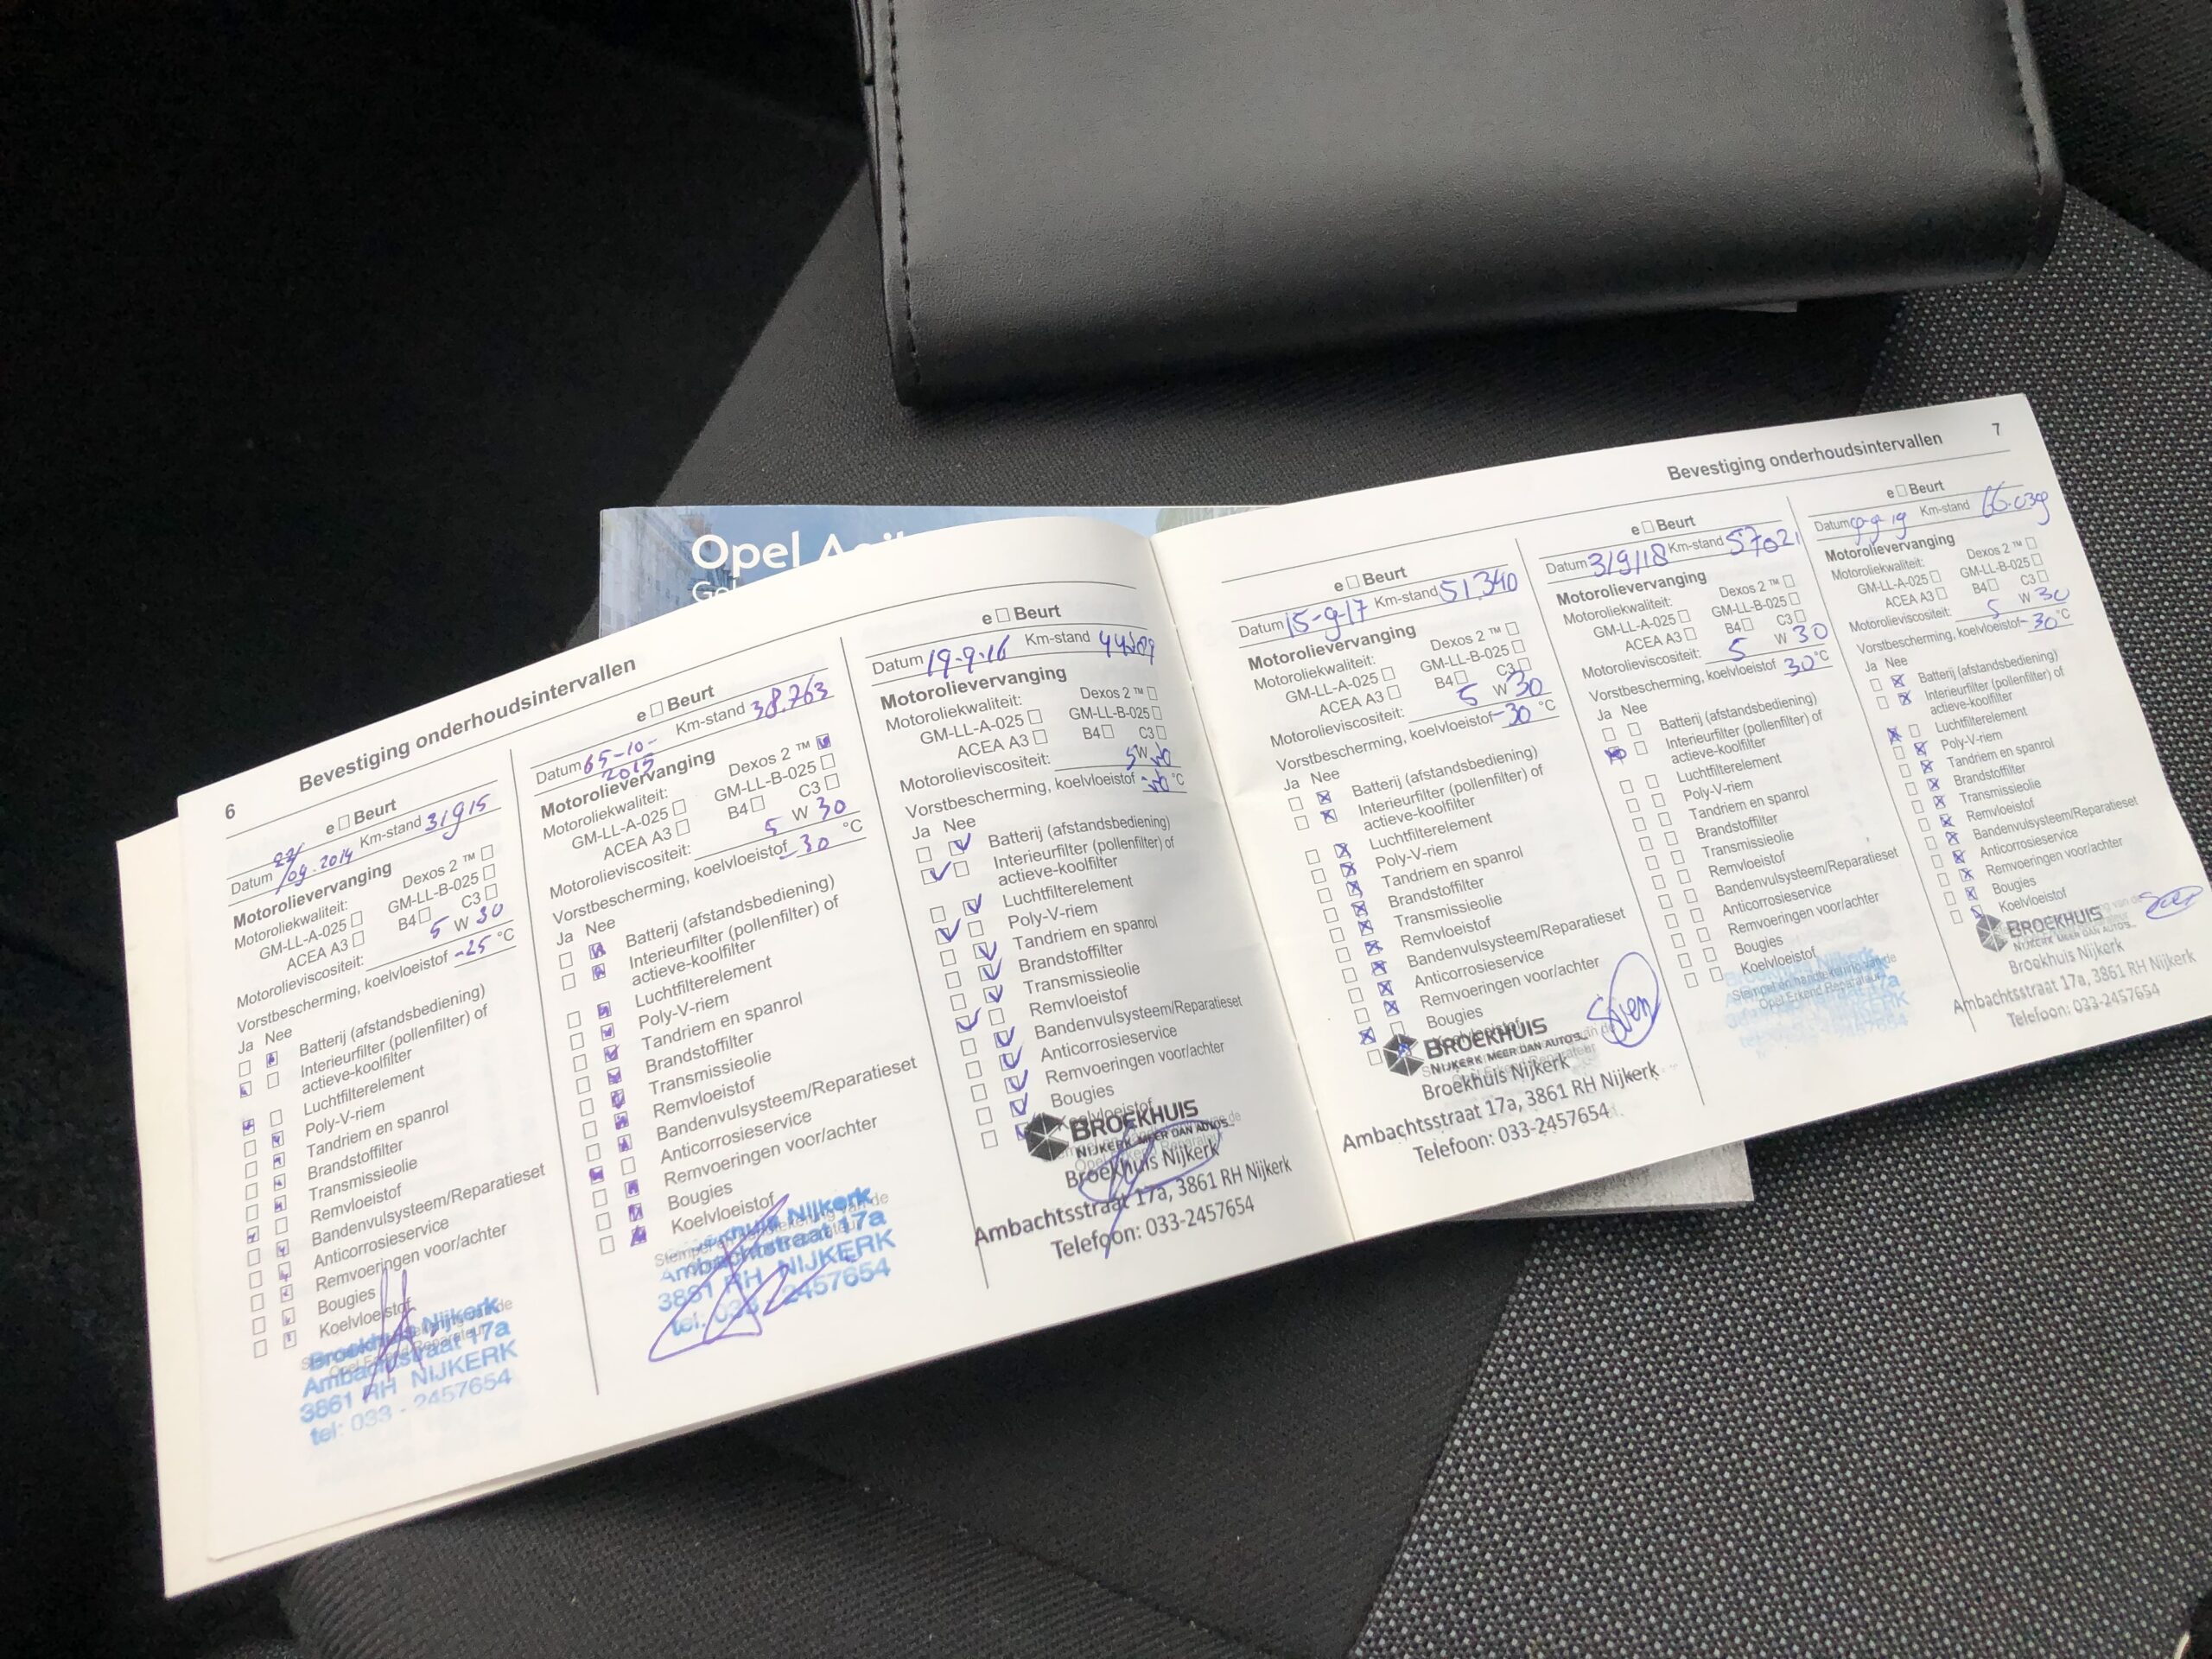 Opel
6
Bevestiging onderhoudsintervallen
e □ Beurt
Datum 22/09.2014 Km-stand 31915
Motorolievervanging
Motoroliekwaliteit: Dexos 2 ™ □
GM-LL-A-025 □ GM-LL-B-025 □
ACEA A3 □ B4 □ C3 □
Motorolieviscositeit: 5 W 30
Vorstbescherming, koelvloeistof -25 °C
Ja Nee
Batterij (afstandsbediening)
Interieurfilter (pollenfilter) of
actieve-koolfilter
Luchtfilterelement
Poly-V-riem
Tandriem en spanrol
Brandstoffilter
Transmissieolie
Remvloeistof
Bandenvulsysteem/Reparatieset
Anticorrosieservice
Remvoeringen voor/achter
Bougies
Koelvloeistof
Broekhuis Nijkerk
Ambachtstraat 17a
3861 RH NIJKERK
tel: 033 - 2457654
e □ Beurt
Datum -10-2015 Km-stand 38.763
Motorolievervanging
Motoroliekwaliteit: Dexos 2 ™
GM-LL-A-025 □ GM-LL-B-025 □
ACEA A3 □ B4 □ C3 □
Motorolieviscositeit: 5 W 30
Vorstbescherming, koelvloeistof -30 °C
Ja Nee
Batterij (afstandsbediening)
Interieurfilter (pollenfilter) of
actieve-koolfilter
Luchtfilterelement
Poly-V-riem
Tandriem en spanrol
Brandstoffilter
Transmissieolie
Remvloeistof
Bandenvulsysteem/Reparatieset
Anticorrosieservice
Remvoeringen voor/achter
Bougies
Koelvloeistof
Nijkerk
Ambachtstraat 17a
3861 RH NIJKERK
tel. 033 - 2457654
e □ Beurt
Datum 19-9-16 Km-stand
Motorolievervanging
Motoroliekwaliteit: Dexos 2 ™ □
GM-LL-A-025 □ GM-LL-B-025 □
ACEA A3 □ B4 □ C3 □
Motorolieviscositeit: 5 W
Vorstbescherming, koelvloeistof °C
Ja Nee
Batterij (afstandsbediening)
Interieurfilter (pollenfilter) of
actieve-koolfilter
Luchtfilterelement
Poly-V-riem
Tandriem en spanrol
Brandstoffilter
Transmissieolie
Remvloeistof
Bandenvulsysteem/Reparatieset
Anticorrosieservice
Remvoeringen voor/achter
Bougies
Koelvloeistof
BROEKHUIS
NIJKERK MEER DAN AUTO'S...
Broekhuis Nijkerk
Ambachtsstraat 17a, 3861 RH Nijkerk
Telefoon: 033-2457654
Bevestiging onderhoudsintervallen
7
e □ Beurt
Datum 15-9-17 Km-stand 51.340
Motorolievervanging
Motoroliekwaliteit: Dexos 2 ™ □
GM-LL-A-025 □ GM-LL-B-025 □
ACEA A3 □ B4 □ C3 □
Motorolieviscositeit: 5 W 30
Vorstbescherming, koelvloeistof -30 °C
Ja Nee
Batterij (afstandsbediening)
Interieurfilter (pollenfilter) of
actieve-koolfilter
Luchtfilterelement
Poly-V-riem
Tandriem en spanrol
Brandstoffilter
Transmissieolie
Remvloeistof
Bandenvulsysteem/Reparatieset
Anticorrosieservice
Remvoeringen voor/achter
Bougies
BROEKHUIS
NIJKERK MEER DAN AUTO'S...
Broekhuis Nijkerk
Ambachtsstraat 17a, 3861 RH Nijkerk
Telefoon: 033-2457654
e □ Beurt
Datum 3/9/18 Km-stand 57021
Motorolievervanging
Motoroliekwaliteit: Dexos 2 ™ □
GM-LL-A-025 □ GM-LL-B-025 □
ACEA A3 □ B4 □ C3 □
Motorolieviscositeit: 5 W 30
Vorstbescherming, koelvloeistof 30 °C
Ja Nee
Batterij (afstandsbediening)
Interieurfilter (pollenfilter) of
actieve-koolfilter
Luchtfilterelement
Poly-V-riem
Tandriem en spanrol
Brandstoffilter
Transmissieolie
Remvloeistof
Bandenvulsysteem/Reparatieset
Anticorrosieservice
Remvoeringen voor/achter
Bougies
Koelvloeistof
Stempel en handtekening van de
Opel Erkend Reparateur
e □ Beurt
Datum 9-9-19 Km-stand 66.039
Motorolievervanging
Motoroliekwaliteit: Dexos 2 ™ □
GM-LL-A-025 □ GM-LL-B-025 □
ACEA A3 □ B4 □ C3 □
Motorolieviscositeit: 5 W 30
Vorstbescherming, koelvloeistof -30 °C
Ja Nee
Batterij (afstandsbediening)
Interieurfilter (pollenfilter) of
actieve-koolfilter
Luchtfilterelement
Poly-V-riem
Tandriem en spanrol
Brandstoffilter
Transmissieolie
Remvloeistof
Bandenvulsysteem/Reparatieset
Anticorrosieservice
Remvoeringen voor/achter
Bougies
Koelvloeistof
BROEKHUIS
NIJKERK MEER DAN AUTO'S...
Broekhuis Nijkerk
Ambachtsstraat 17a, 3861 RH Nijkerk
Telefoon: 033-2457654